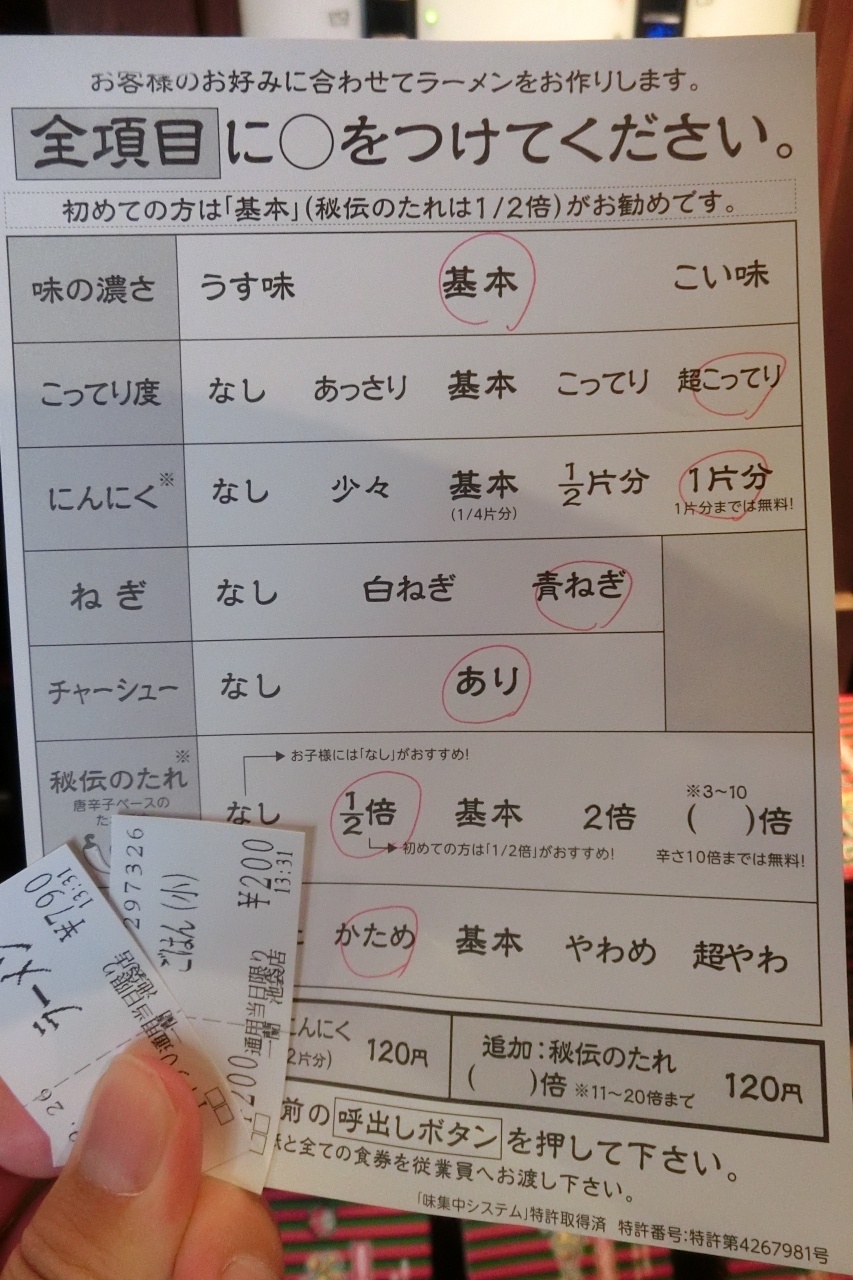 お客様のお好みに合わせてラーメンをお作りします。
全項目に○をつけてください。
初めての方は「基本」(秘伝のたれは1/2倍)がお勧めです。
味の濃さ うす味 基本 こい味
こってり度 なし あっさり 基本 こってり 超こってり
にんにく※ なし 少々 基本 1/2片分 1片分
(1/4片分) 1片分までは無料!
ねぎ なし 白ねぎ 青ねぎ
チャーシュー なし あり
※ お子様には「なし」がおすすめ!
秘伝のたれ なし 1/2倍 基本 2倍 ※3〜10 ( )倍
唐辛子ベースの
初めての方は「1/2倍」がおすすめ! 辛さ10倍までは無料!
かため 基本 やわめ 超やわ
にんにく 120円
2片分)
追加:秘伝のたれ 120円
( )倍 ※11〜20倍まで
前の呼出しボタンを押して下さい。
と全ての食券を従業員へお渡し下さい。
「味集中システム」特許取得済 特許番号:特許第4267981号
297326
ごはん(小)
¥200
13:31
通用当日限り
一蘭 池袋店
200
ラーメン
¥790
13:31